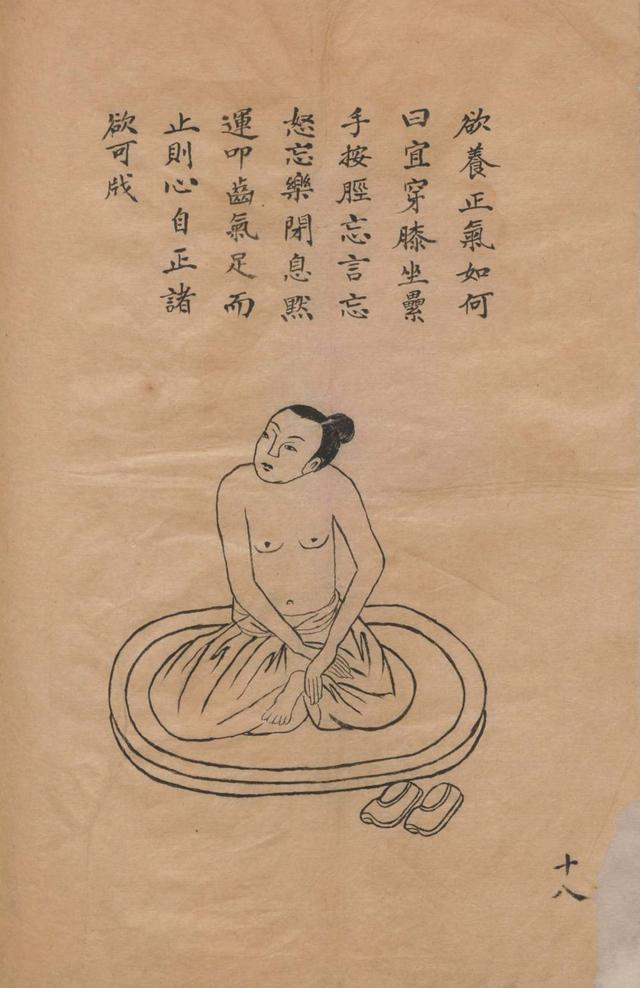 欲養正氣如何
曰宜穿膝坐壘
手按脛忘言忘
怒忘樂閉息黙
運叩齒氣足而
止則心自正諸
欲可戕
十八